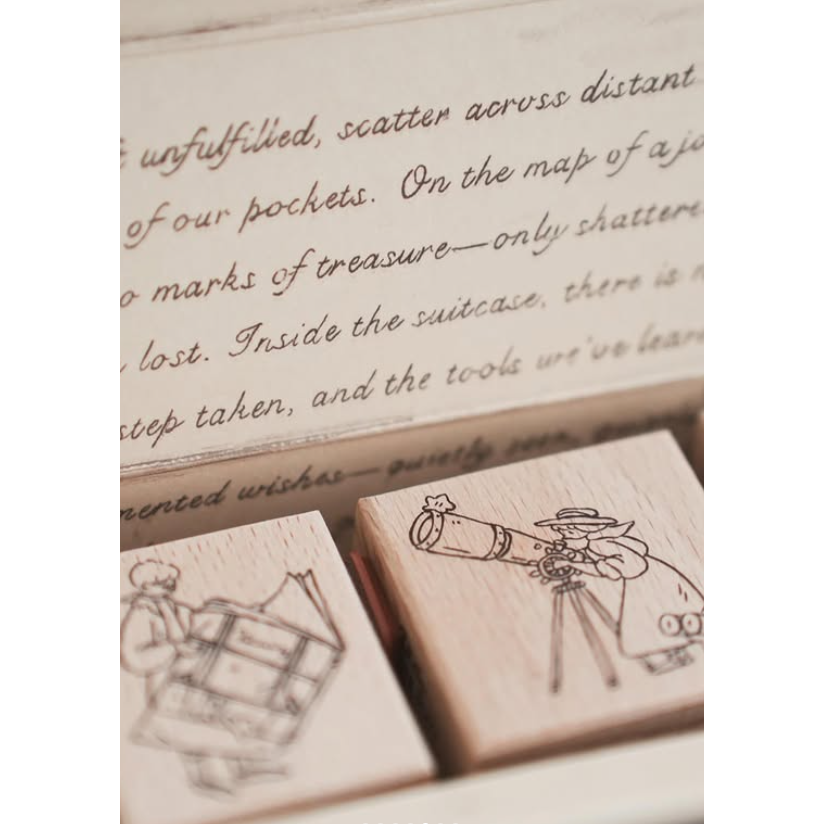 unfulfilled, scatter across distant
of our pockets. On the map of a jo
o marks of treasure—only shattere
lost. Inside the suitcase, there is
step taken, and the tools we've lear
mented wishes—quietly